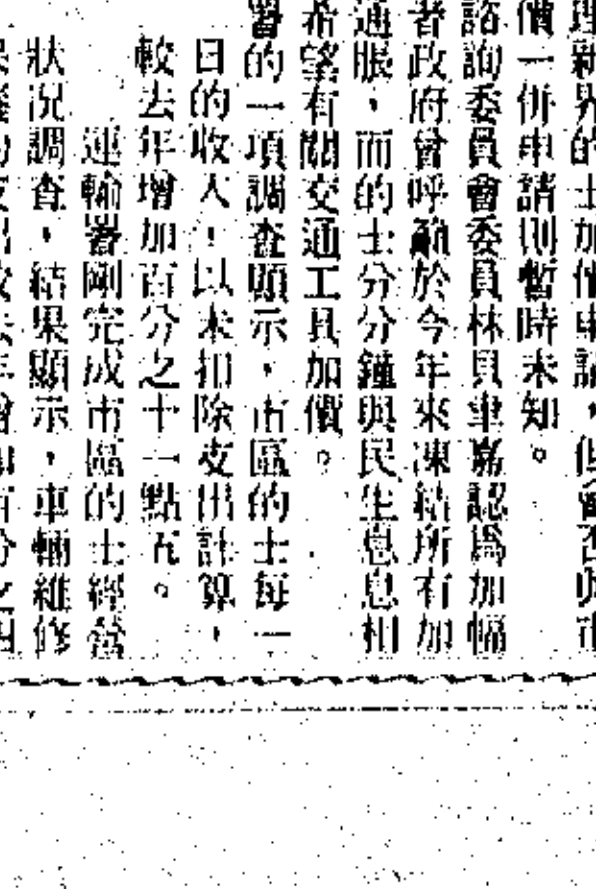 理新界的士加價申請，但會否與市
價一併申請則暫時未知。
諮詢委員會委員林貝聿嘉認爲加幅
者政府曾呼籲於今年來凍結所有加
通脹，而的士分分鐘與民生息息相
希望有關交通工具加價。
署的一項調查顯示，市區的士每一
日的收入，以未扣除支出計算，
較去年增加百分之十一點五。
運輸署剛完成市區的士經營
狀况調查，結果顯示，車輛維修
支出較去年增加百分之四